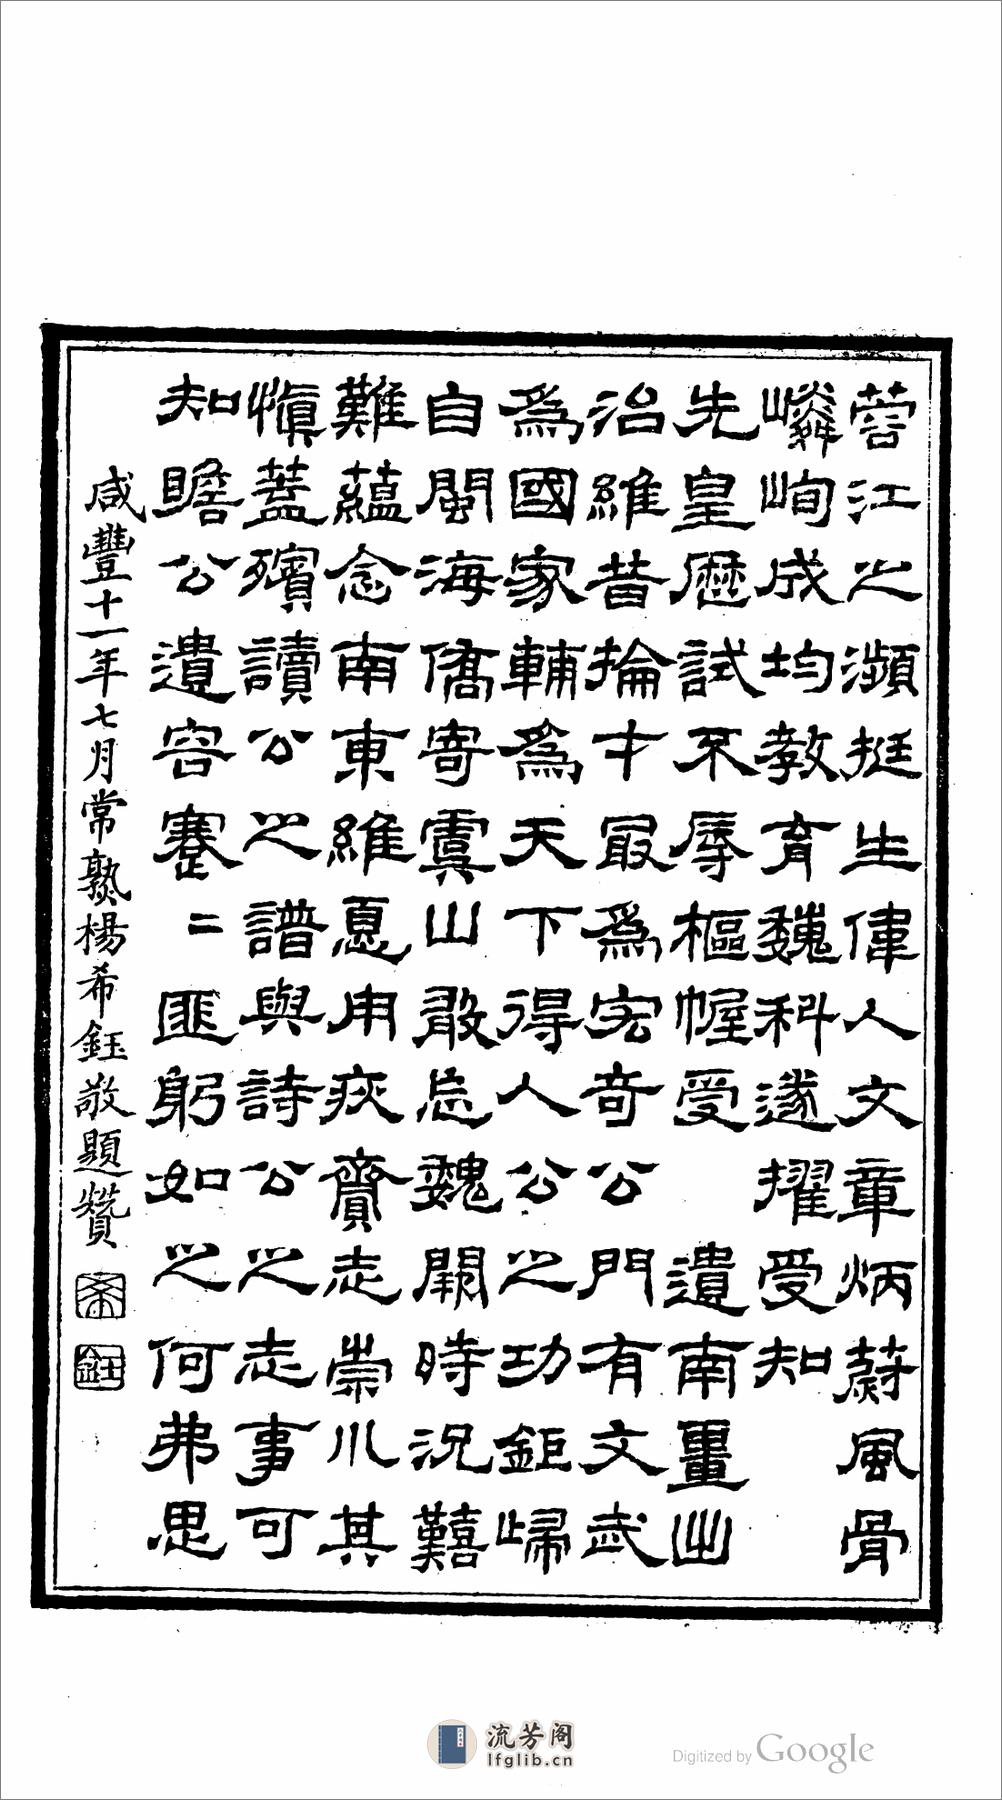 蓉江之瀕挺生偉人文章炳蔚風骨
嶙峋成均教育魏科遂擢受知
先皇歷試不辱樞幄受 遺南畺出
治維昔掄才最為宏奇公門有文武
為國家輔為天下得人公之功鉅歸
自閩海僑寄虞山敢忘魏闕時況囏
難蘊念南東維悳用疚齎志崇川其
慎蓋殯讀公之譜與詩公之志事可
知瞻公遺容蹇二匪躬如之何弗思
咸豐十一年七月常熟楊希鈺敬題贊
希
鈺
流芳阁
lfglib.cn
Digitized by Google